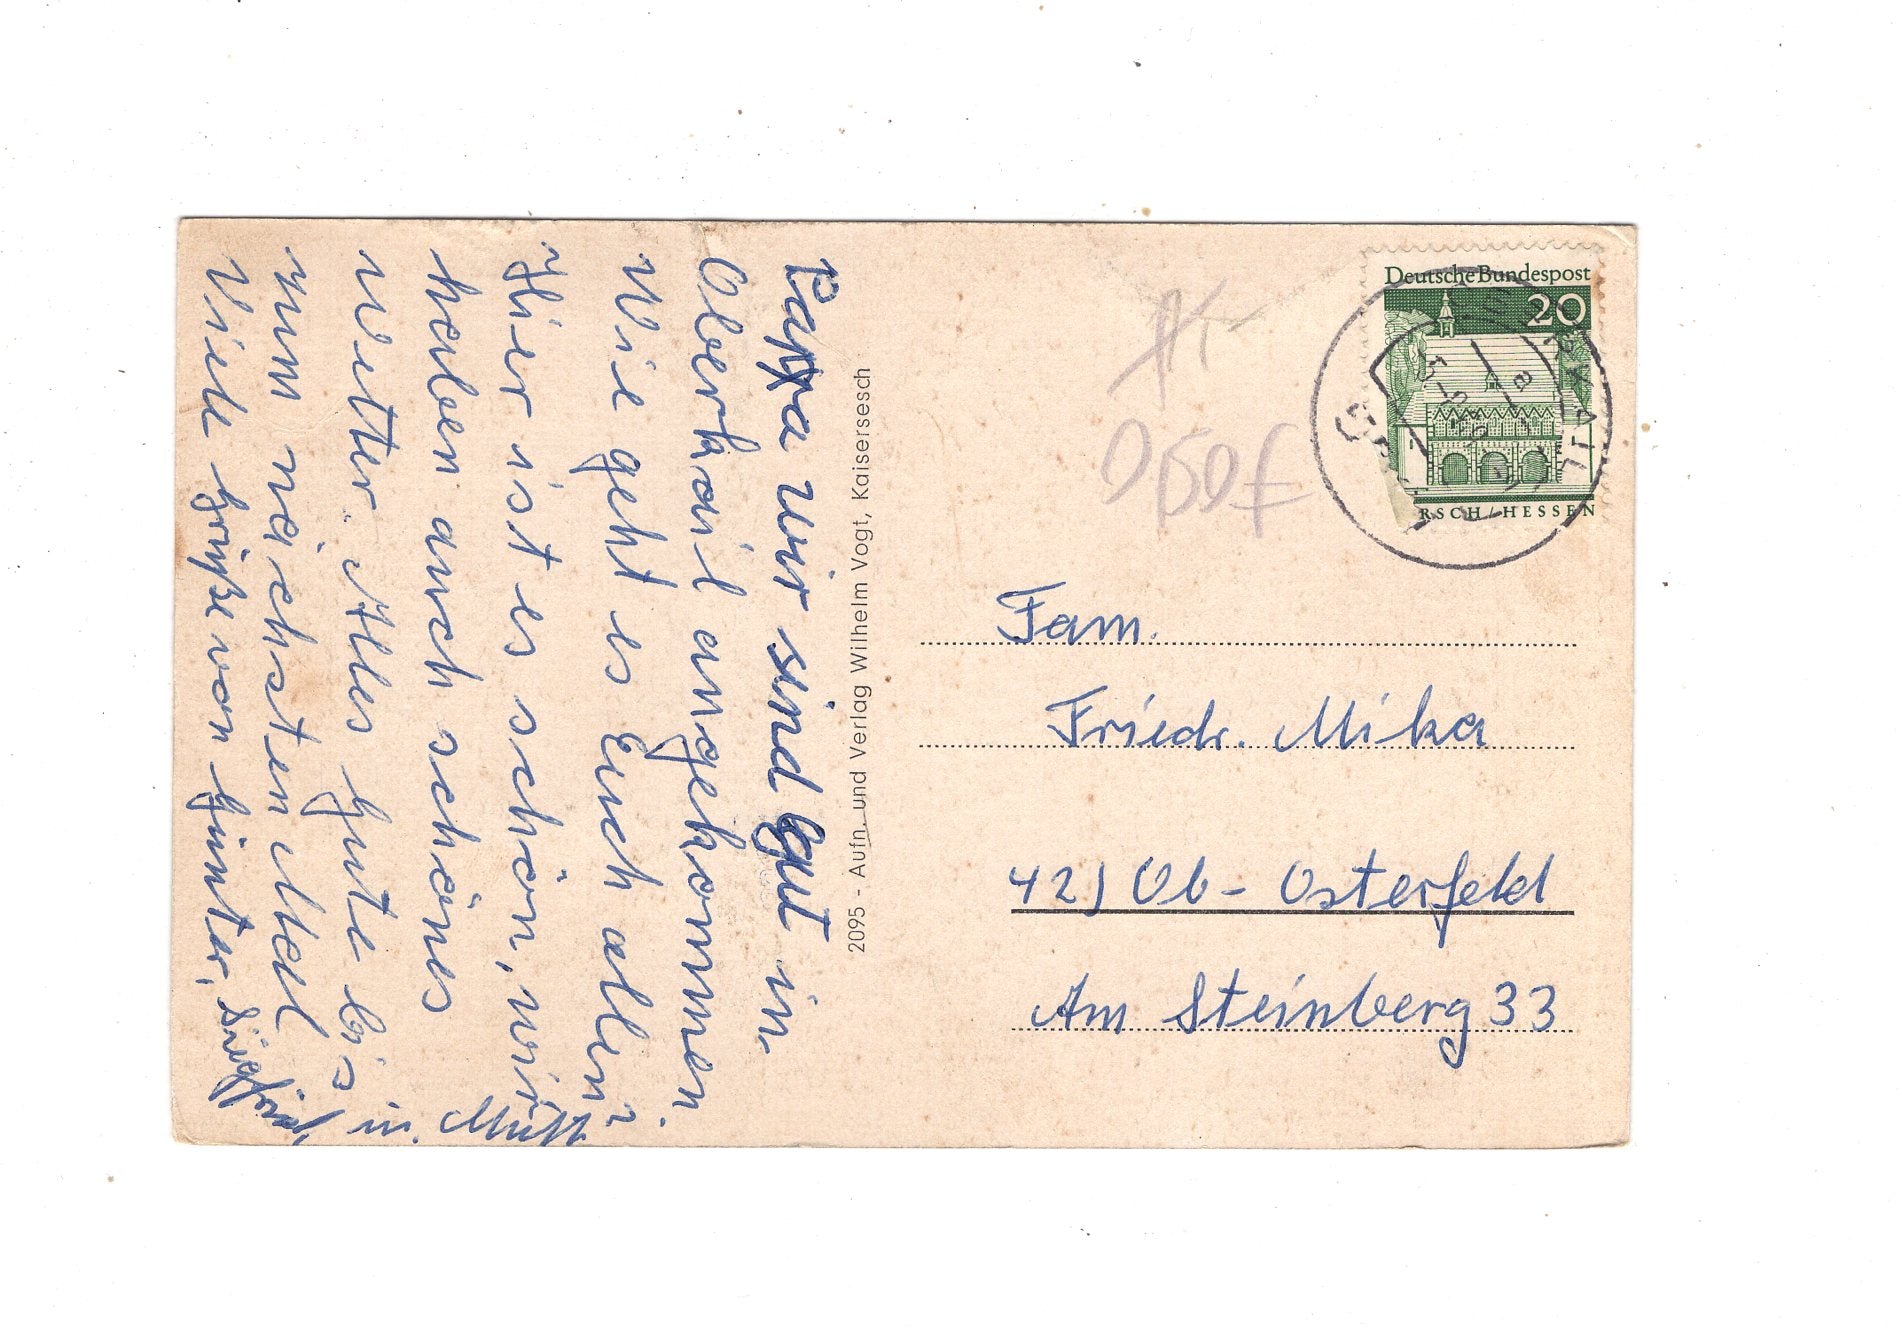 Papa wir sind gut in
Oberkail angekommen.
Wie geht es Euch allen?
Hier ist es schön, wir
haben auch schönes
Wetter. Alles Gute bis
zum nächsten Mal
Viele Grüße von Günter, Siegfried
u. Mutti
2095 - Aufn. und Verlag Wilhelm Vogt, Kaisersesch
Deutsche Bundespost
20
RSCH/HESSEN
0,50 €
Fam.
Friedr. Mika
42) Ob-Osterfeld
Am Steinberg 33